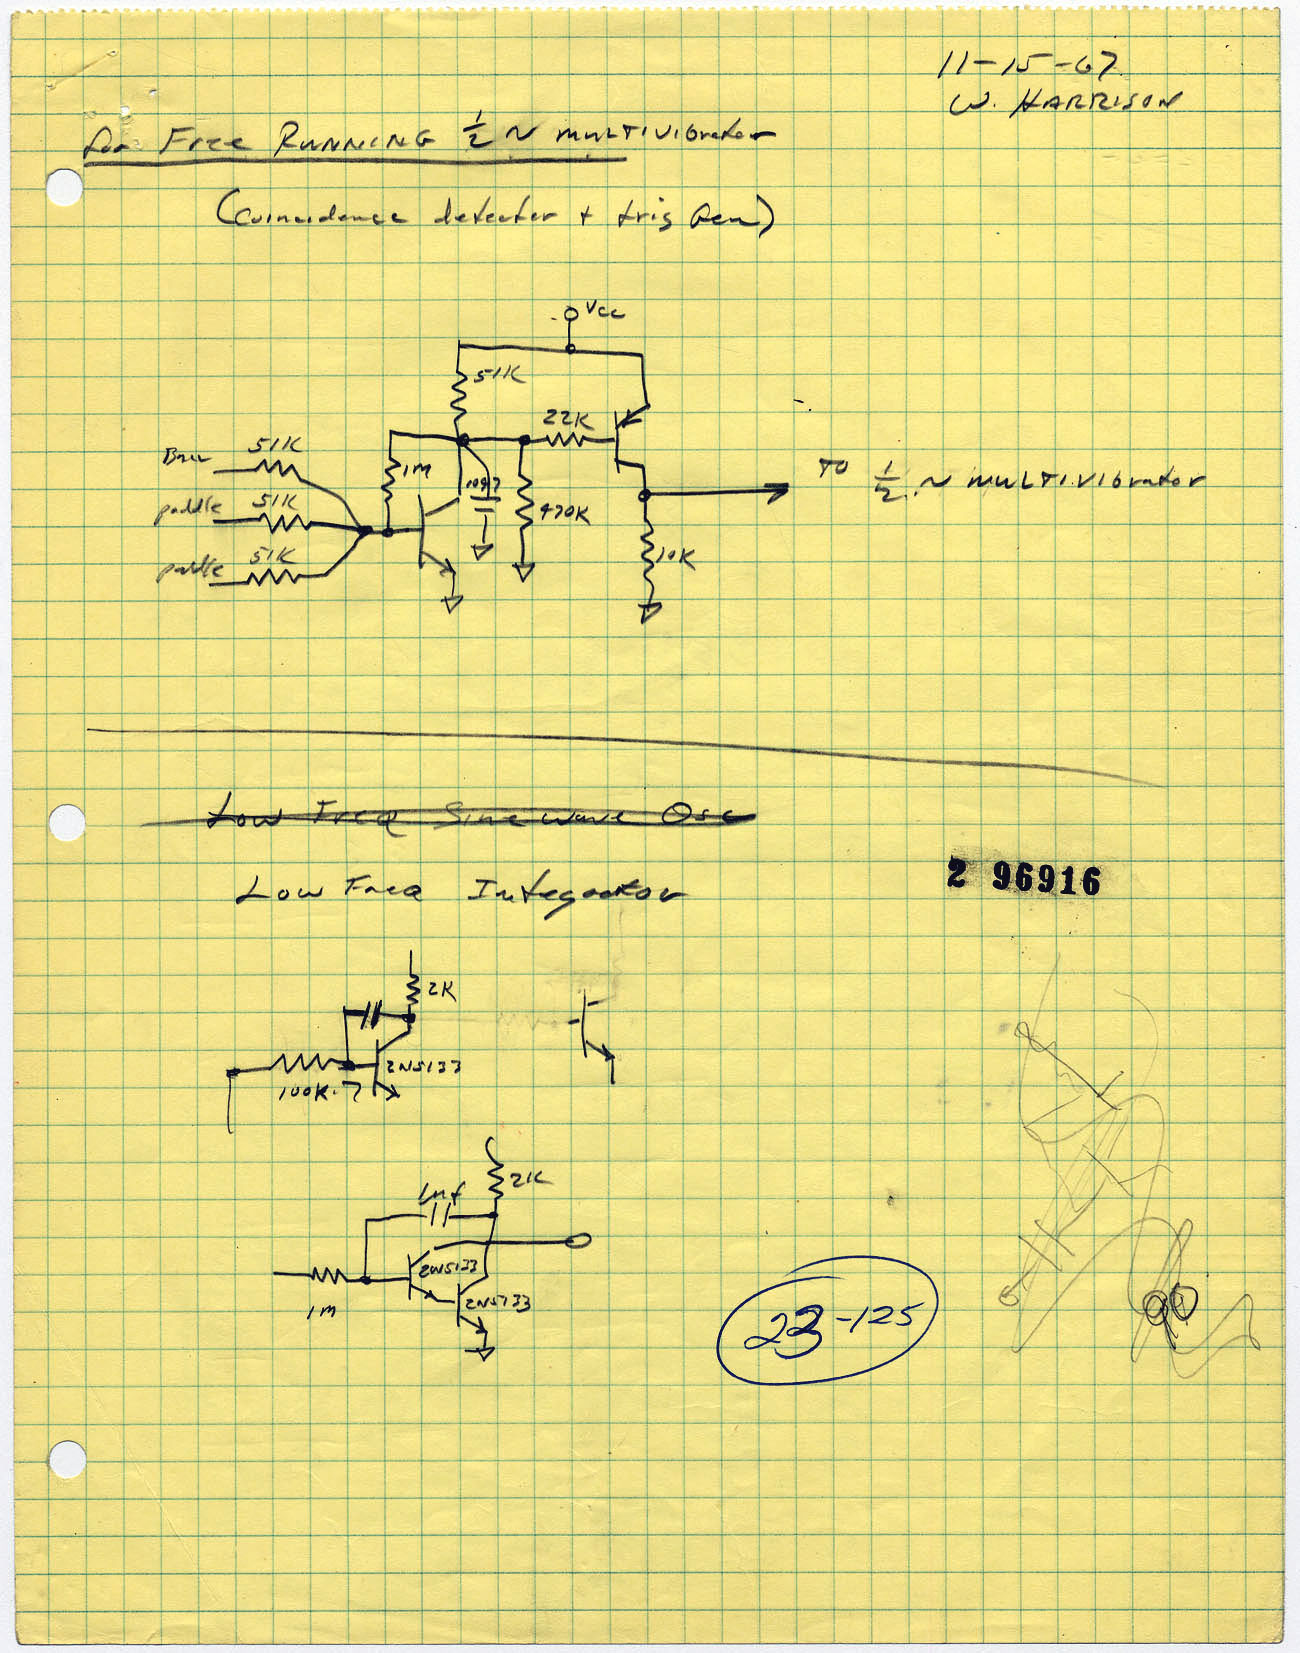 11-15-67
W. HARRISON
For Free RUNNING 1/2 ~ MULTIVIBrator
(Coincidence detector + trig Gen)
Vcc
51K
22K
Ball 51K
1M
paddle 51K
470K
paddle 51K
10K
TO 1/2 ~ MULTIVIbrator
Low Freq Sine wave Osc
Low Freq Integrator
2 96916
2K
2N5133
100K
2K
1uf
2N5133
2N5133
1M
23-125